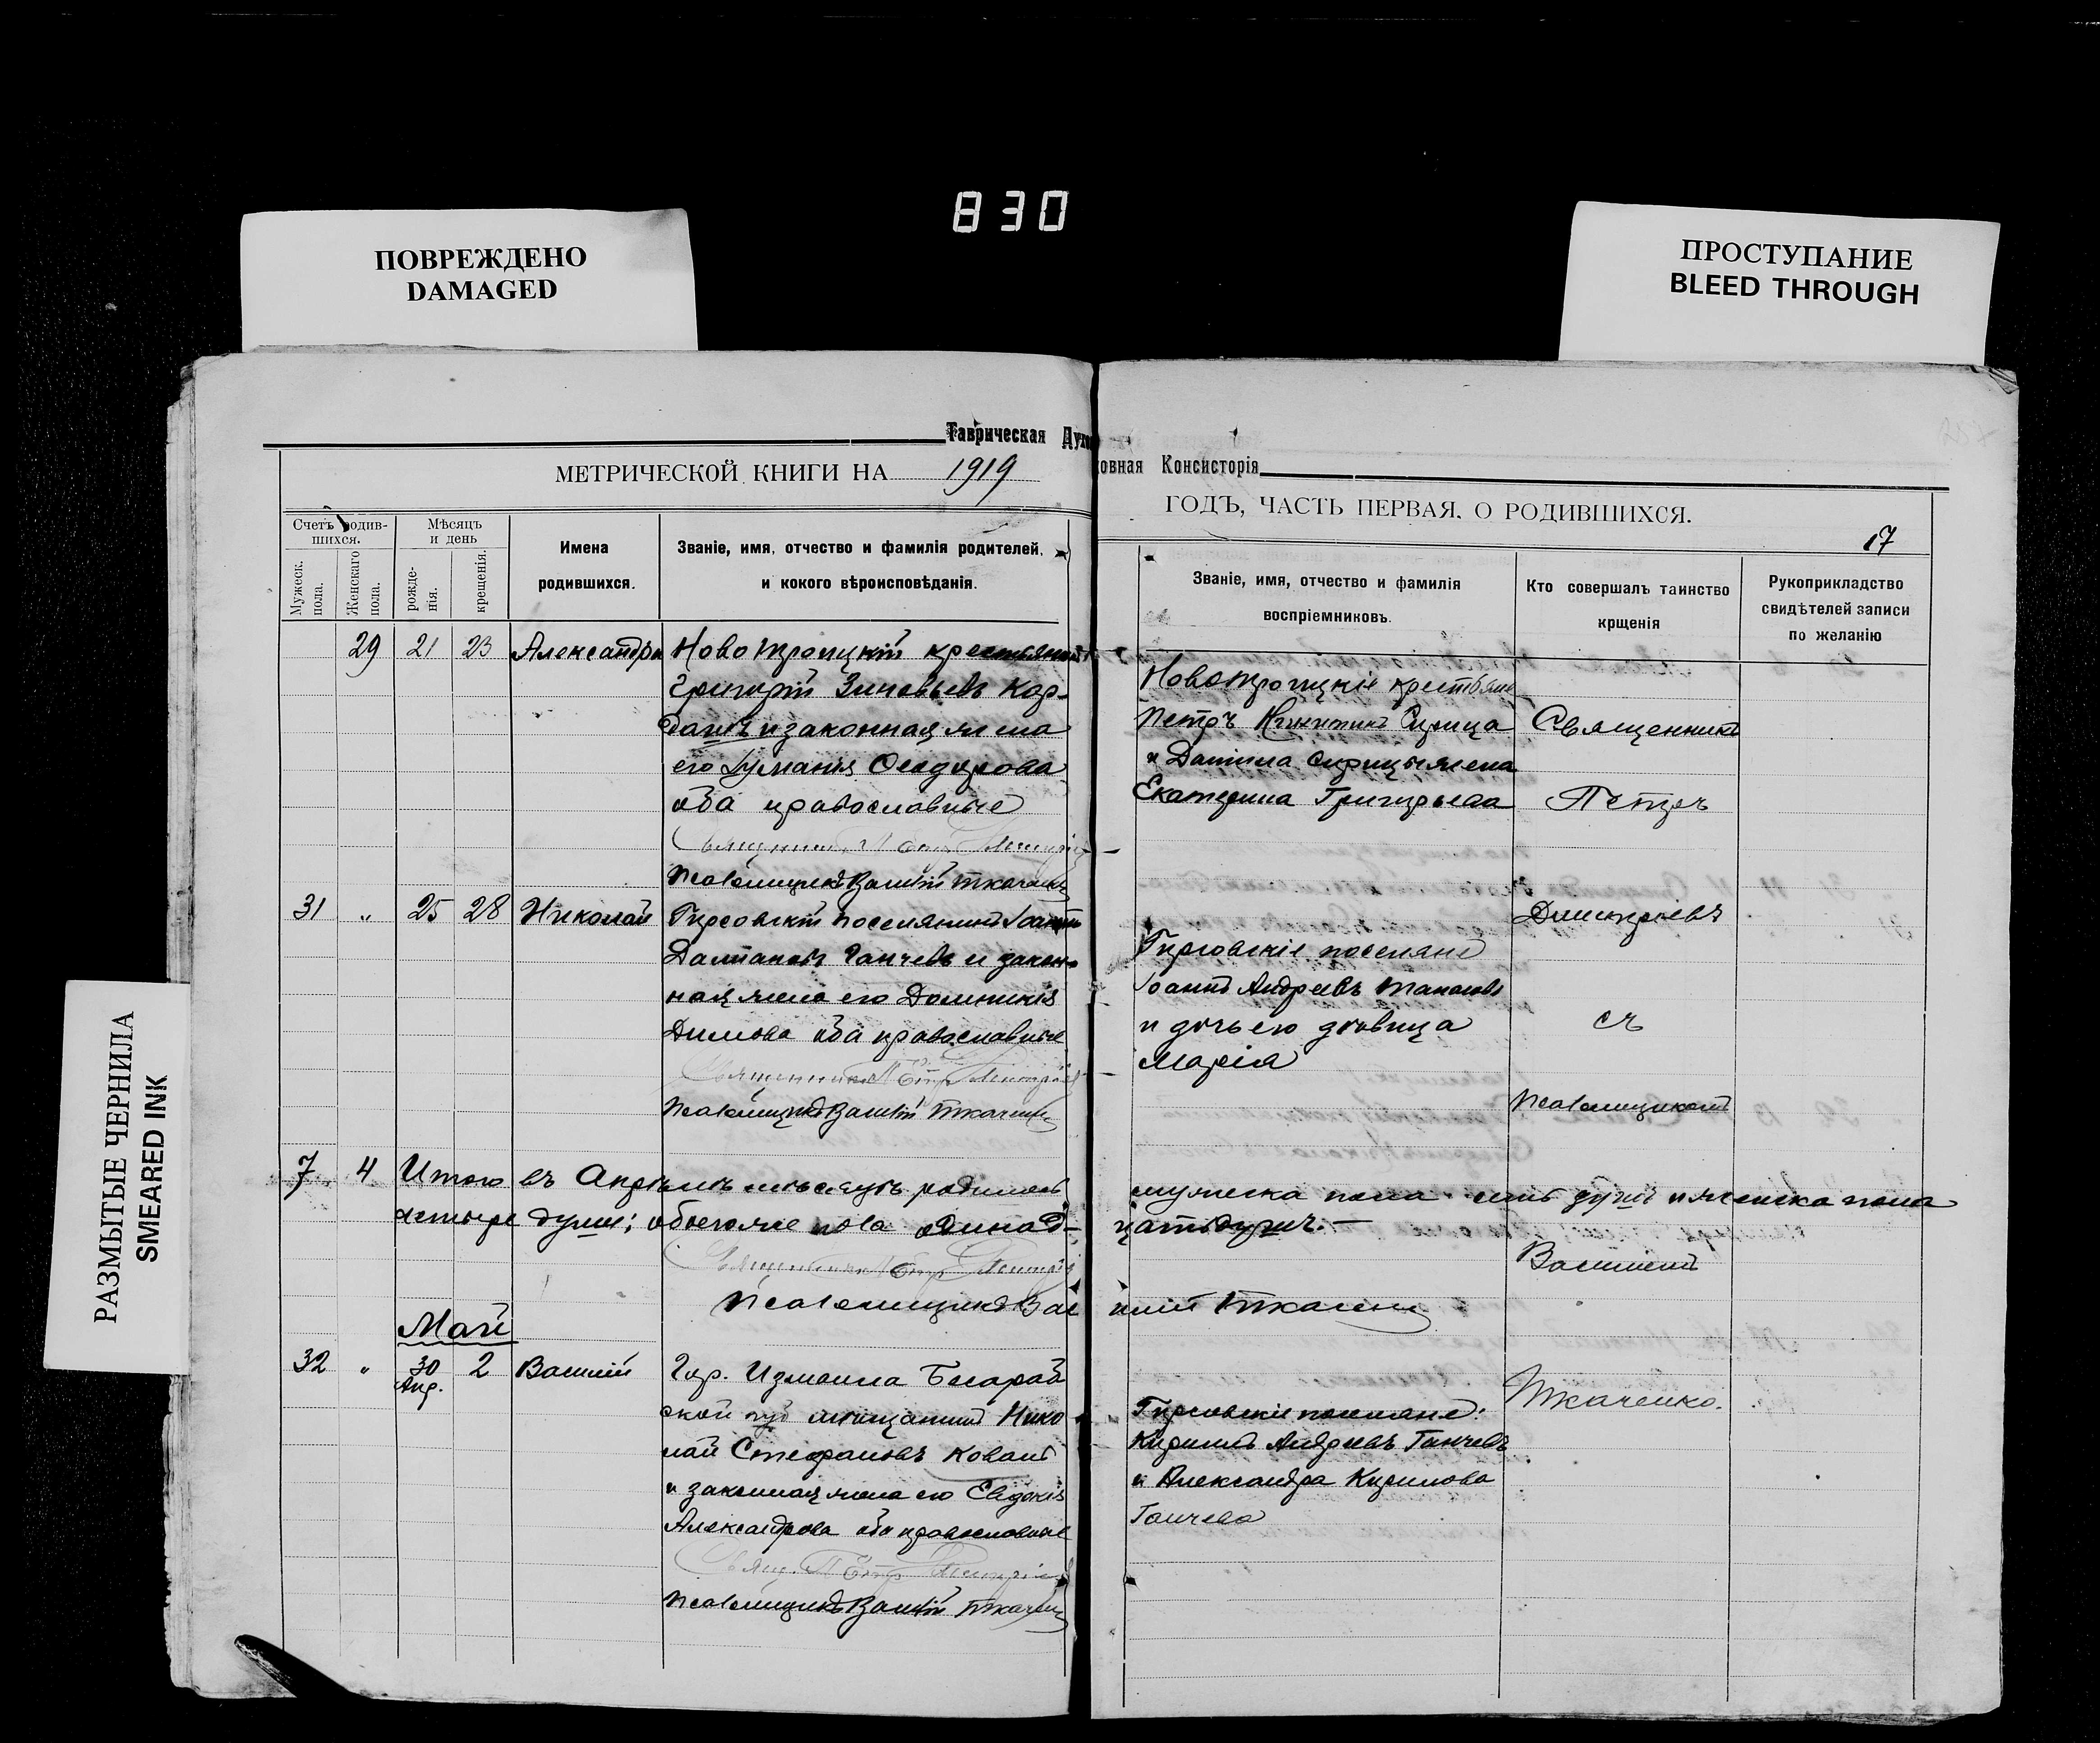 830
ПОВРЕЖДЕНО
DAMAGED
ПРОСТУПАНИЕ
BLEED THROUGH
РАЗМЫТЫЕ ЧЕРНИЛА
SMEARED INK
Таврическая Духовная Консисторія
МЕТРИЧЕСКОЙ КНИГИ НА 1919
Счетъ родив-
шихся.
Мужеск.
пола.
Женскаго
пола.
Мѣсяцъ
и день
рожде-
нія.
крещенія.
Имена
родившихся.
Званіе, имя, отчество и фамилія родителей,
и кокого вѣроисповѣданія.
29 21 23 Александра Новотроицкій крестьянинъ
Григорій Зиновьевъ Кор-
и законная жена
его Ѳеодорова
оба православные
Псаломщикъ Василій Ткаченко
31 „ 25 28 Николай Гирсовскій поселянинъ Іоаннъ
Ганчевъ и закон-
ная жена его Домникія
Димова оба православные
Священникъ Петръ Димитріевъ
Псаломщикъ Василій Ткаченко
7 4 Итого въ Апрѣлѣ мѣсяцѣ родилось
четыре души; обоего же пола одинад-
Священникъ Петръ Димитріевъ
Псаломщикъ Василій Ткаченко
Май
32 „ 30 2 Василій Гор. Измаила Бесараб
Апр.
ской губ мѣщанинъ Нико
лай Стефановъ Кованъ
и законная жена его Евдокія
Александрова оба православные
Свящ. Петръ Димитріевъ
Псаломщикъ Василій Ткаченко
ГОДЪ, ЧАСТЬ ПЕРВАЯ, О РОДИВШИХСЯ.
17
Званіе, имя, отчество и фамилія
воспріемниковъ.
Кто совершалъ таинство
крщенія
Рукоприкладство
свидѣтелей записи
по желанію
Новотроицкіе крестьяне
Петръ Никитинъ Сирица
и Даніила Сирицы жена
Екатерина Григорьева
Священникъ
Петръ
Димитріевъ
Гирсовскіе поселяне
Іоаннъ Андреевъ Танасовъ
и дочь его дѣвица
Марія
съ
Псаломщикомъ
мужеска пола семь душъ и женска пола
цать душъ. —
Василіемъ
Ткаченко.
Гирсовскіе поселяне:
Кириллъ Андреевъ Ганчевъ
и Александра Кирилова
Ганчева